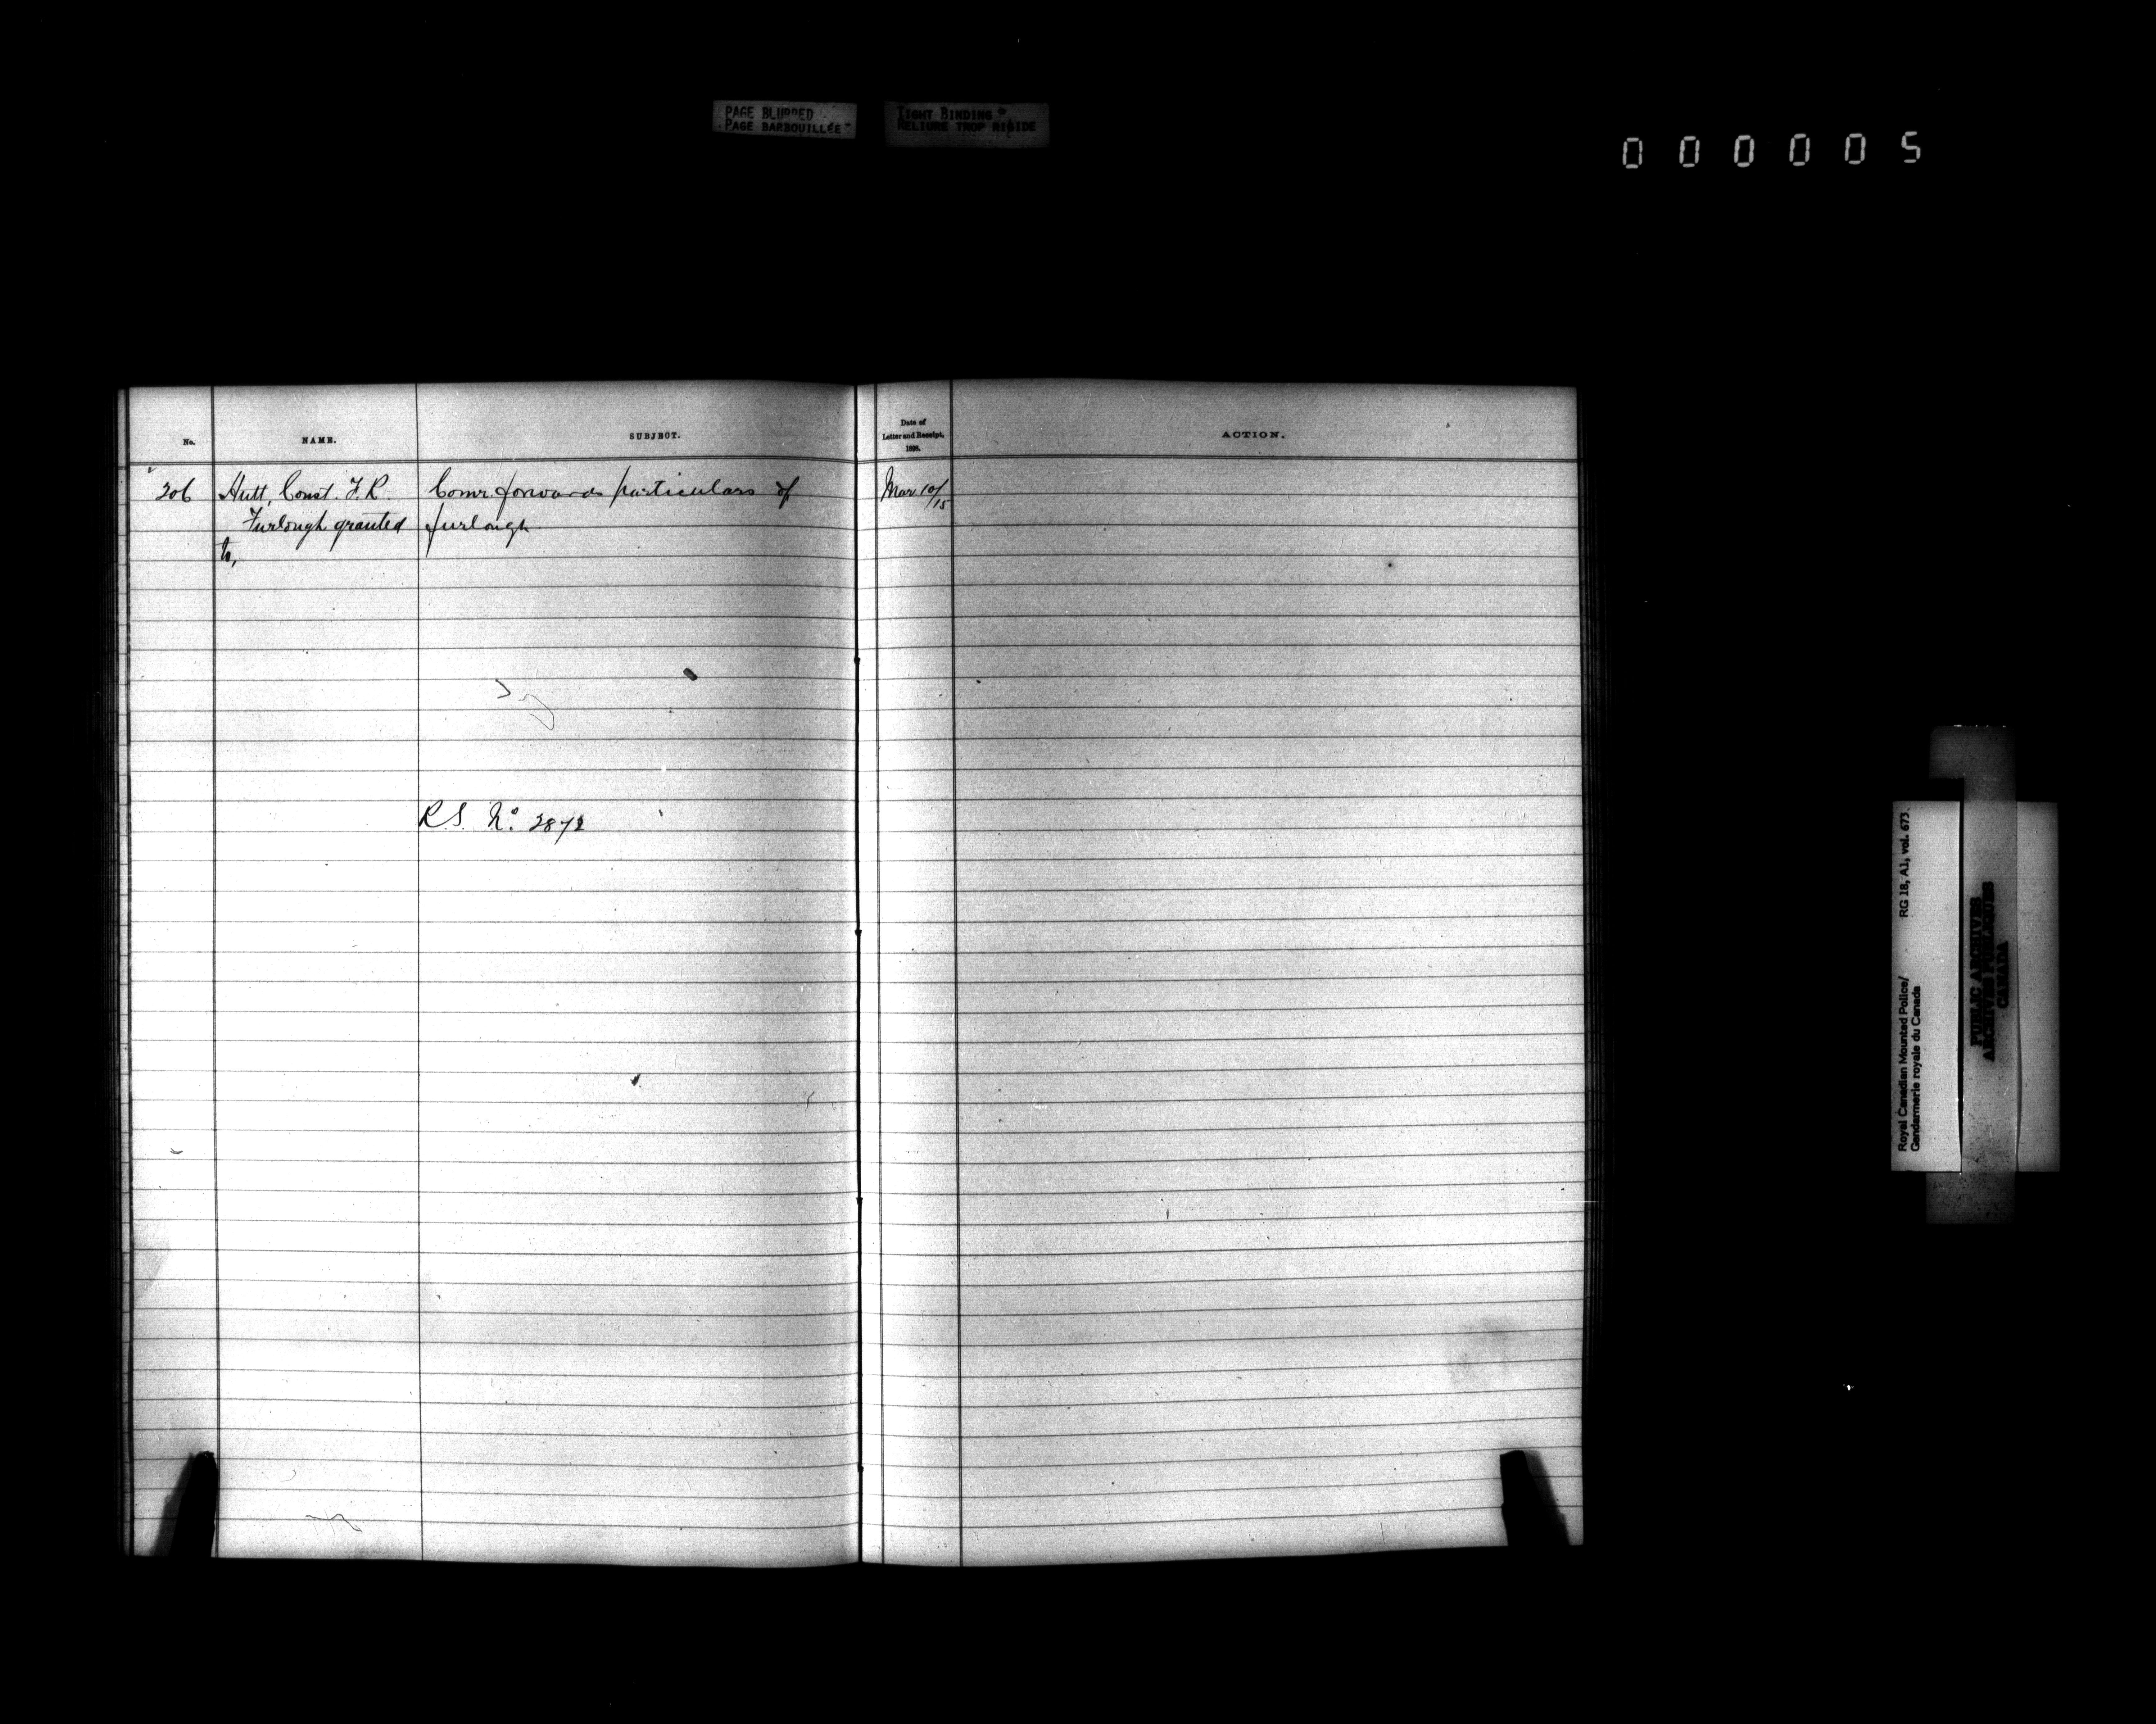 PAGE BLURRED
PAGE BARBOUILLÉE
TIGHT BINDING
RELIURE TROP RIGIDE
000005
No. NAME. SUBJECT. Date of Letter and Receipt, 1898. ACTION.
206 Hutt, Const. F. R. Comr. forwards particulars of Mar 10/15
Furlough granted furlough
to,
R.S. No. 2872
Royal Canadian Mounted Police/ RG 18, A1, vol. 673.
Gendarmerie royale du Canada
PUBLIC ARCHIVES
ARCHIVES PUBLIQUES
CANADA